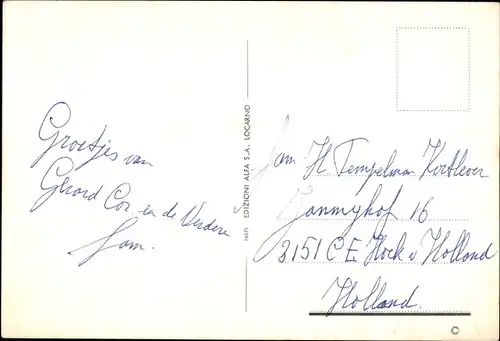 Groetjes van
Gerard Cor. en de Verdere
fam.
14571 EDIZIONI ALFA S.A., LOCARNO
Fam H. Tempelman Kortlever
16
3151 CE Hoek v Holland
Holland.
©